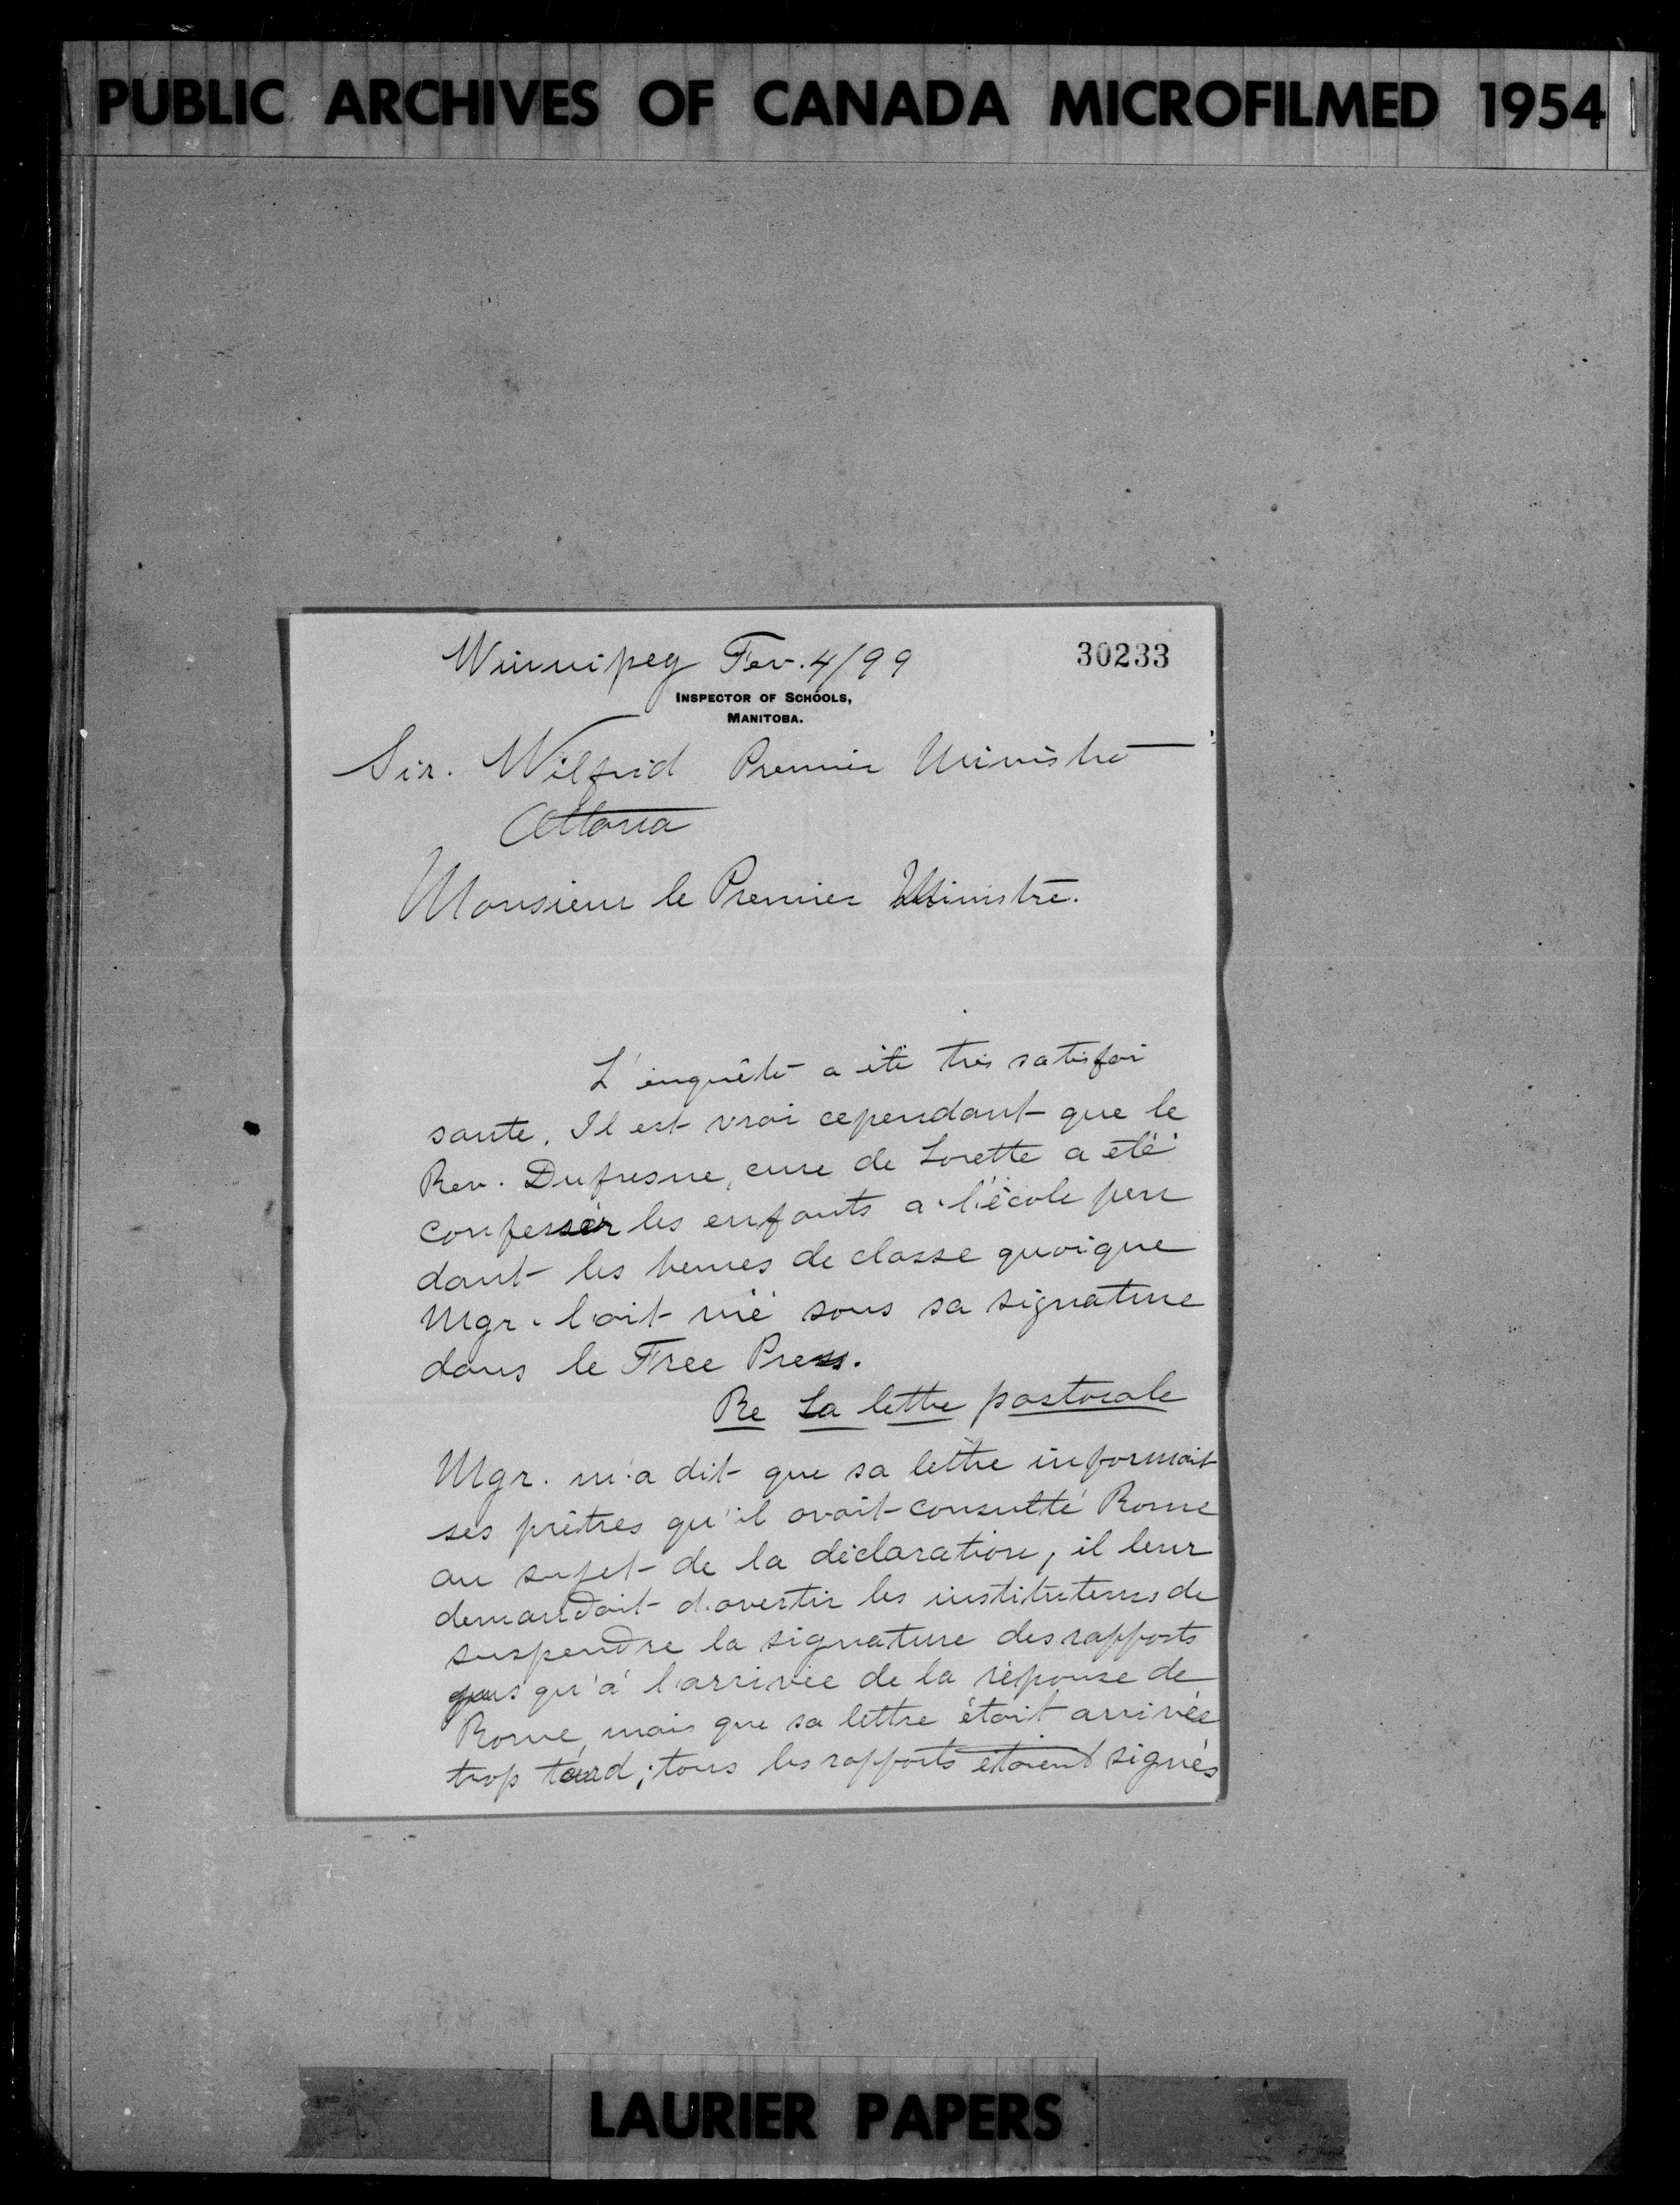 PUBLIC ARCHIVES OF CANADA MICROFILMED 1954
Winnipeg Fev. 4/99
30233
INSPECTOR OF SCHOOLS,
MANITOBA.
Sir. Wilfrid Premier Ministre
Ottawa
Monsieur le Premier Ministre.
L'enquête a été très satisfai
sante. Il est vrai cependant que le
Rev. Dufresne, cure de Lorette a été
confesser les enfants a l'école pen
dant les heures de classe quoique
Mgr. l'ait nié sous sa signature
dans le Free Press.
Re La lettre pastorale
Mgr. m'a dit que sa lettre informait
ses prêtres qu'il avait consulté Rome
au sujet de la déclaration, il leur
demandait d'avertir les instituteurs de
suspendre la signature des rapports
jusqu'à l'arrivée de la réponse de
Rome, mais que sa lettre était arrivée
trop tard; tous les rapports étaient signés
LAURIER PAPERS